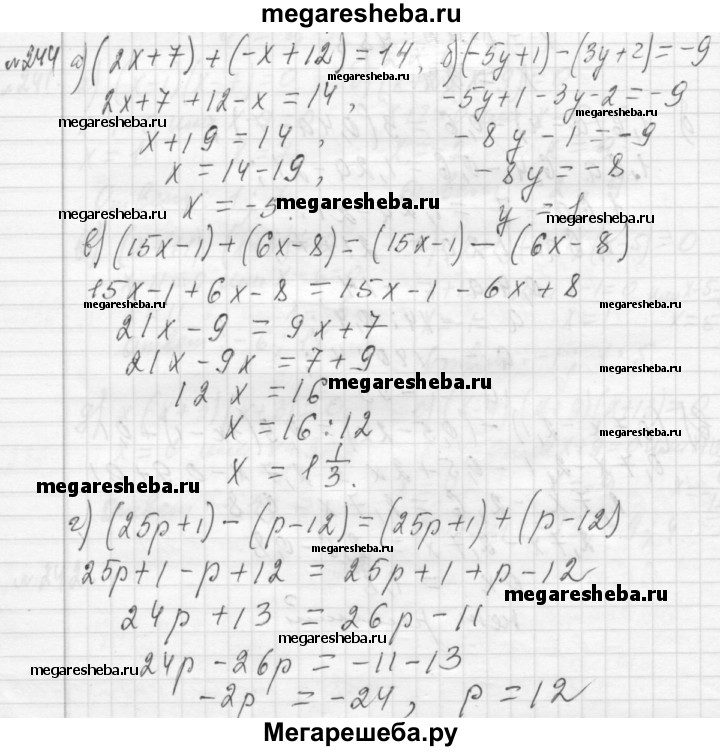 megaresheba.ru
№244 а) (2x+7) + (-x+12) = 14, б) (-5y+1) - (3y+2) = -9
megaresheba.ru
2x+7+12-x = 14, -5y+1-3y-2 = -9
megaresheba.ru
megaresheba.ru
x+19 = 14, -8y-1 = -9
x = 14-19, -8y = -8
megaresheba.ru
x = -5. megaresheba.ru y = 1.
megaresheba.ru
megaresheba.ru
в) (15x-1) + (6x-8) = (15x-1) - (6x-8)
15x-1+6x-8 = 15x-1-6x+8
megaresheba.ru
megaresheba.ru
21x-9 = 9x+7
21x-9x = 7+9
megaresheba.ru
12x = 16
megaresheba.ru
x = 16:12
megaresheba.ru
x = 1 1/3.
megaresheba.ru
г) (25p+1) - (p-12) = (25p+1) + (p-12)
megaresheba.ru
25p+1-p+12 = 25p+1+p-12
megaresheba.ru
24p+13 = 26p-11
megaresheba.ru
megaresheba.ru
24p-26p = -11-13
-2p = -24, p = 12
Мегарешеба.ру